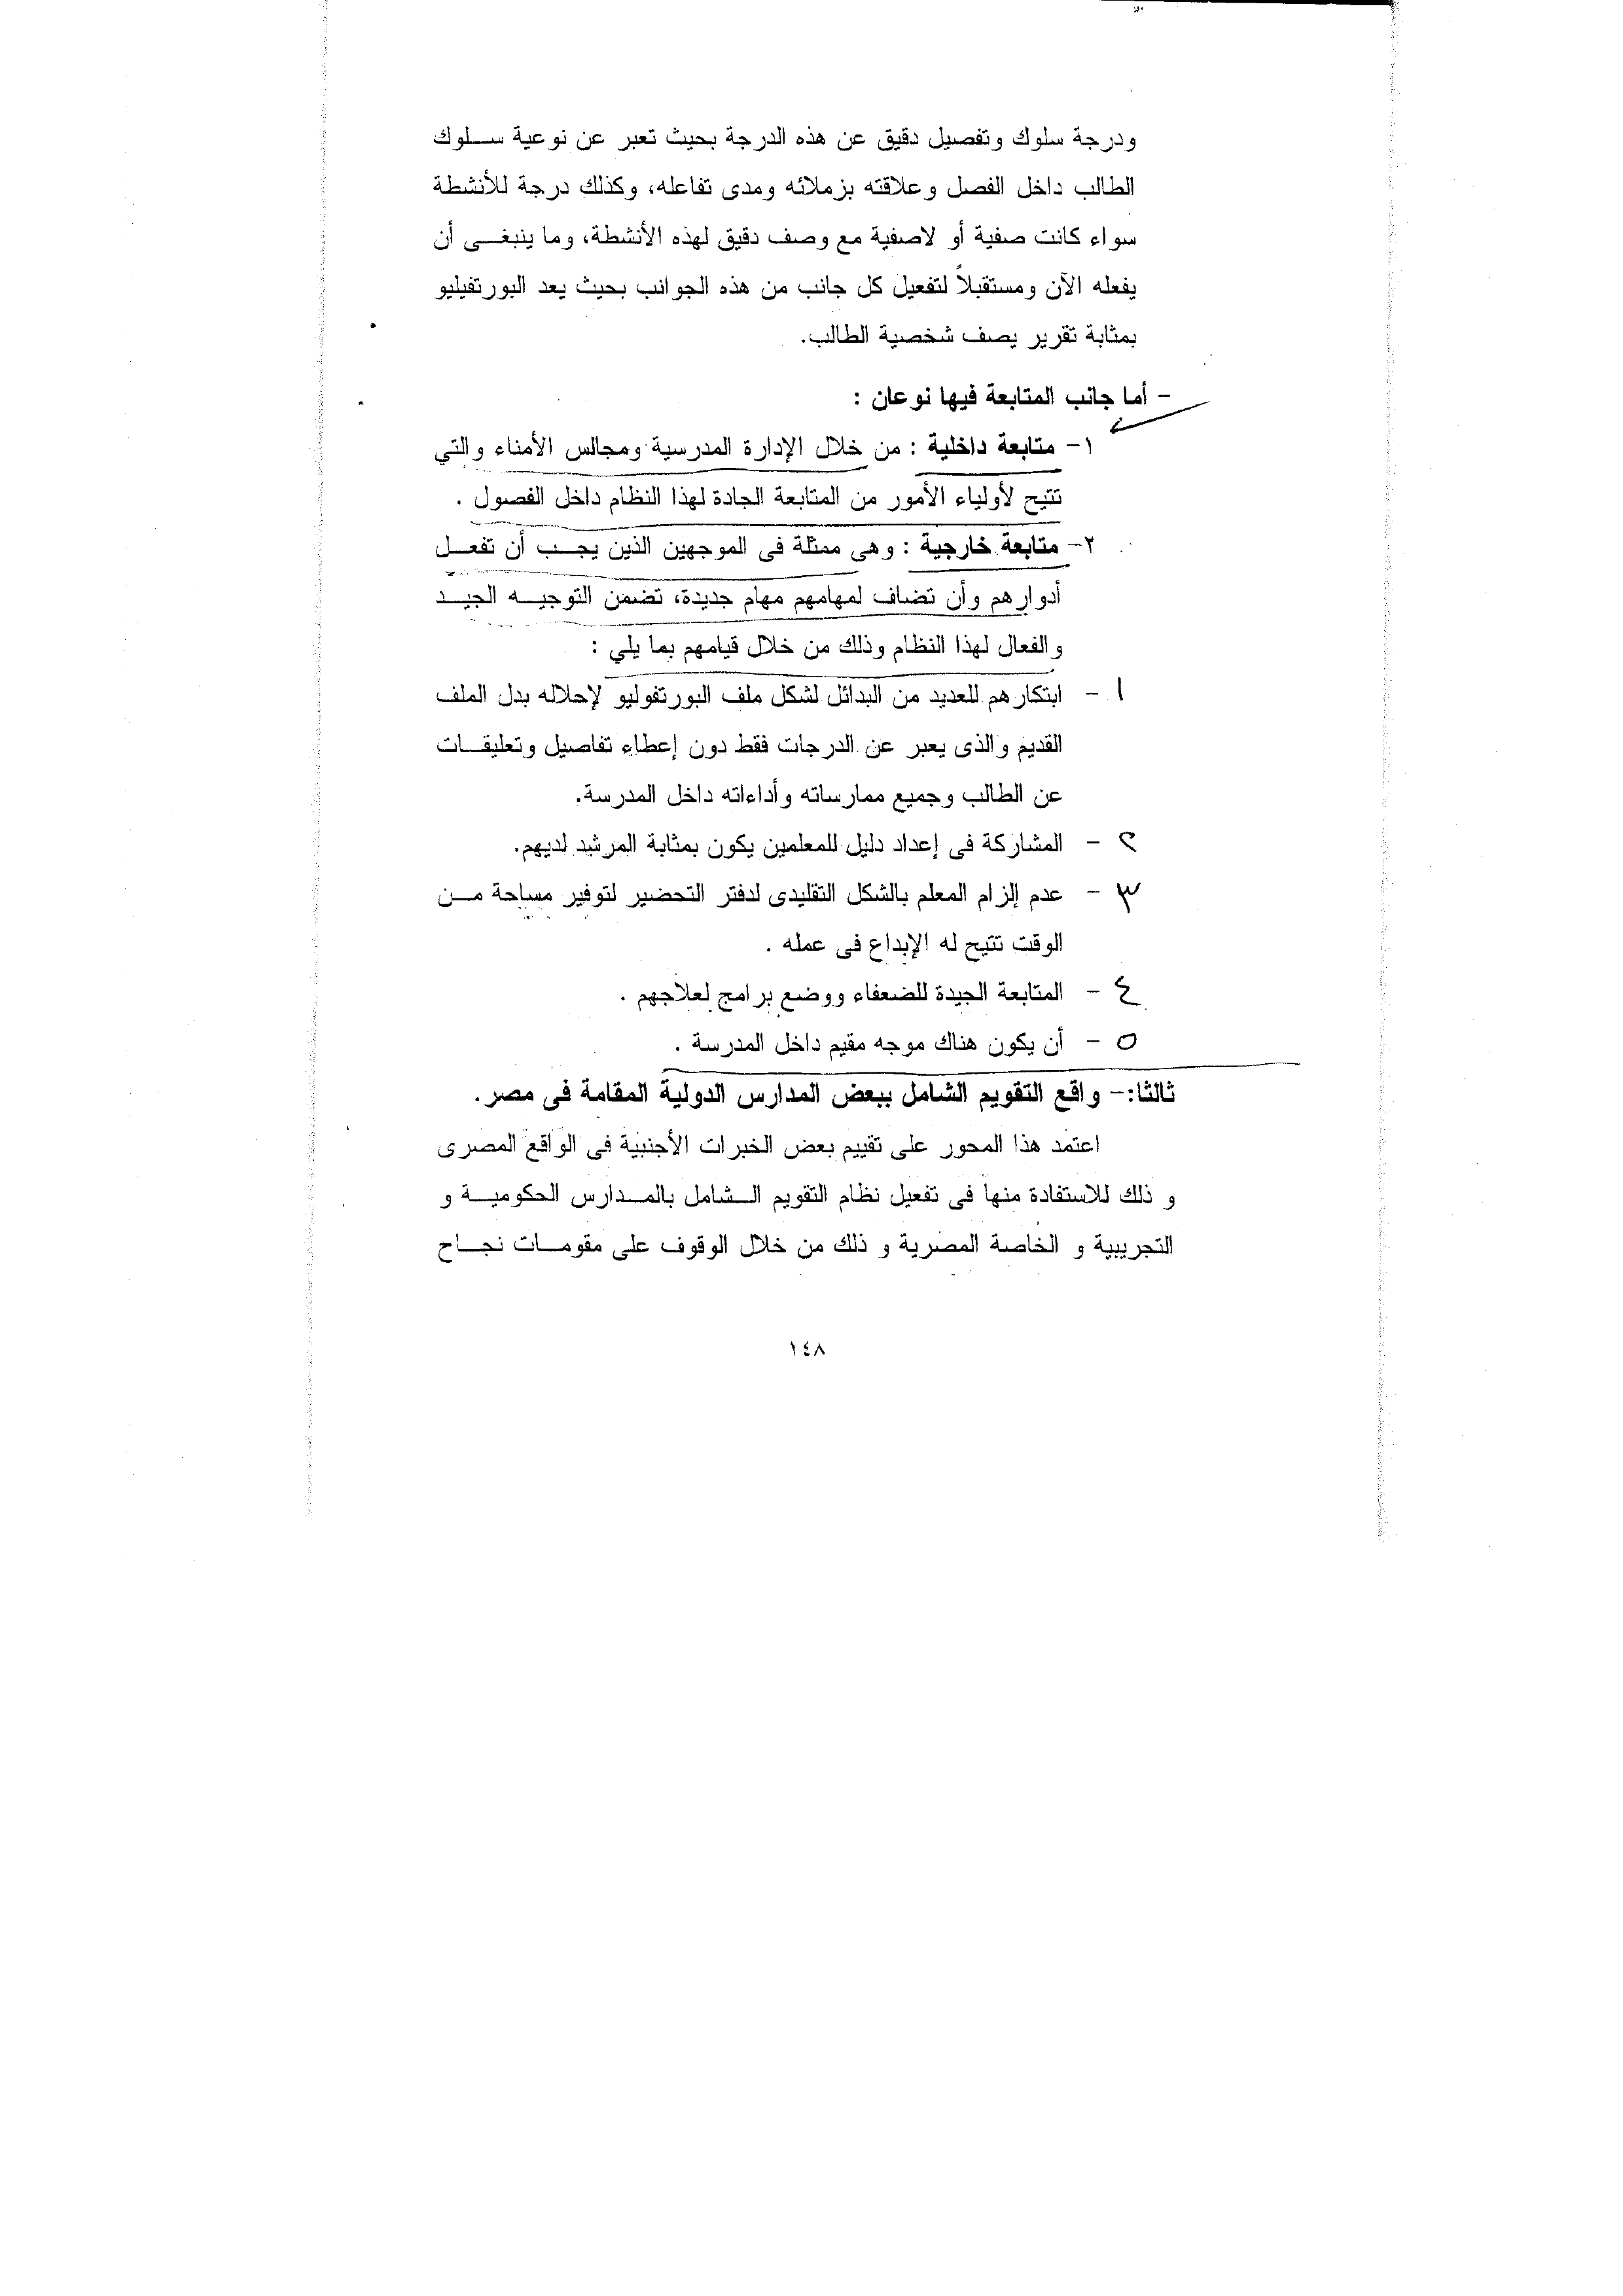 ودرجة سلوك وتفصيل دقيق عن هذه الدرجة بحيث تعبر عن نوعية سلوك
الطالب داخل الفصل وعلاقته بزملائه ومدى تفاعله، وكذلك درجة للأنشطة
سواء كانت صفية أو لاصفية مع وصف دقيق لهذه الأنشطة، وما ينبغى أن
يفعله الآن ومستقبلاً لتفعيل كل جانب من هذه الجوانب بحيث يعد البورتفيليو
بمثابة تقرير يصف شخصية الطالب.
- أما جانب المتابعة فيها نوعان :
١- متابعة داخلية : من خلال الإدارة المدرسية ومجالس الأمناء والتي
تتيح لأولياء الأمور من المتابعة الجادة لهذا النظام داخل الفصول .
٢- متابعة خارجية : وهى ممثلة فى الموجهين الذين يجب أن تفعل
أدوارهم وأن تضاف لمهامهم مهام جديدة، تضمن التوجيه الجيد
والفعال لهذا النظام وذلك من خلال قيامهم بما يلي :
١ - ابتكارهم للعديد من البدائل لشكل ملف البورتفوليو لإحلاله بدل الملف
القديم والذى يعبر عن الدرجات فقط دون إعطاء تفاصيل وتعليقات
عن الطالب وجميع ممارساته وأداءاته داخل المدرسة.
٢ - المشاركة فى إعداد دليل للمعلمين يكون بمثابة المرشد لديهم.
٣ - عدم إلزام المعلم بالشكل التقليدى لدفتر التحضير لتوفير مساحة من
الوقت تتيح له الإبداع فى عمله .
٤ - المتابعة الجيدة للضعفاء ووضع برامج لعلاجهم .
٥ - أن يكون هناك موجه مقيم داخل المدرسة .
ثالثا:- واقع التقويم الشامل ببعض المدارس الدولية المقامة فى مصر.
اعتمد هذا المحور على تقييم بعض الخبرات الأجنبية فى الواقع المصرى
و ذلك للاستفادة منها فى تفعيل نظام التقويم الشامل بالمدارس الحكومية و
التجريبية و الخاصة المصرية و ذلك من خلال الوقوف على مقومات نجاح
١٤٨